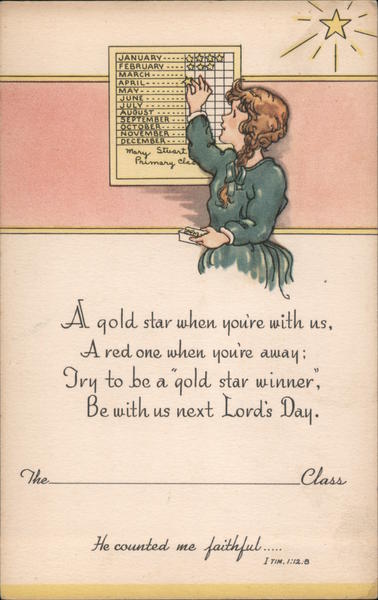 JANUARY
FEBRUARY
MARCH
APRIL
MAY
JUNE
JULY
AUGUST
SEPTEMBER
OCTOBER
NOVEMBER
DECEMBER
Mary Stuart
Primary Clas
A gold star when you're with us,
A red one when you're away;
Try to be a "gold star winner",
Be with us next Lord's Day.
The Class
He counted me faithful.....
I TIM. 1:12.B